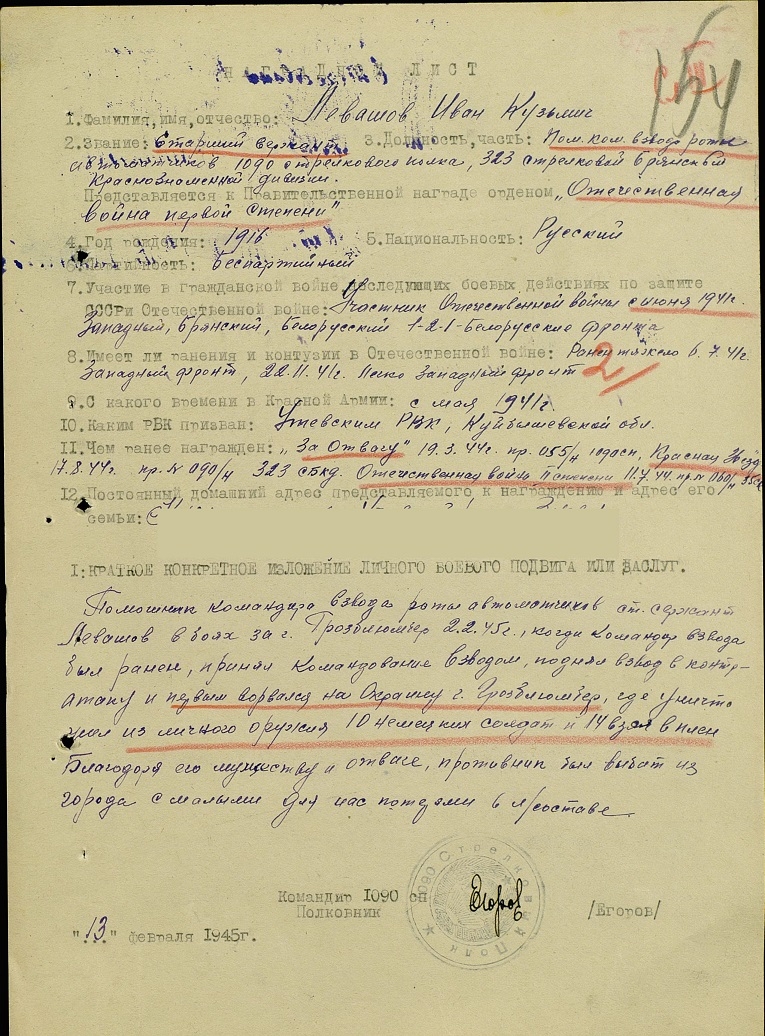 НАГРАДНОЙ ЛИСТ
154
1.Фамилия,имя,отчество: Левашов Иван Кузьмич
2.Звание: Старший сержант 3.Должность,часть: Пом. ком. взвода роты
автоматчиков 1090 стрелкового полка, 323 стрелковой Брянской
Краснознаменной дивизии.
Представляется к Правительственной награде орденом „Отечественная
война первой степени"
4.Год рождения: 1916 5.Национальность: Русский
6.Партийность: Беспартийный
7.Участие в Гражданской войне,последующих боевых действиях по защите
СССРи Отечественной войне: Участник Отечественной войны с июня 1941г.
Западный, Брянский, Белорусский 1-2-1-Белорусские фронта
8.Имеет ли ранения и контузии в Отечественной войне: Ранен тяжело 6.7.41г.
Западный фронт, 22.11.41г. Легко Западный фронт 2/
9.С какого времени в Красной Армии: с мая 1941г.
10.Каким РВК призван: Утевским РВК, Куйбышевской обл.
11.Чем ранее награжден: „За Отвагу" 19.3.44г. пр. 055/н 1090сп, Красная Звезда
17.8.44г. пр.N 090/н 323 сбкд. Отечественная война II степени 11.7.44. пр.N 060/н
12.Постоянный домашний адрес представляемого к награждению и адрес его
семьи:
I:КРАТКОЕ КОНКРЕТНОЕ ИЗЛОЖЕНИЕ ЛИЧНОГО БОЕВОГО ПОДВИГА ИЛИ ЗАСЛУГ.
Помошник командира взвода роты автоматчиков ст. сержант
Левашов в боях за г. Грозблюмбер 2.2.45г., когда командир взвода
был ранен, принял командование взводом, поднял взвод в контр-
атаку и первым ворвался на Окраину г. Грозблюмбер, где уничто
жил из личного оружия 10 немецких солдат и 14 взял в плен
Благодоря его мужеству и отваге, противник был выбит из
города с малыми для нас потерями в л/составе
Командир 1090 сп
Полковник Егоров /Егоров/
"13" февраля 1945г.
1090 Стрелковый Полк